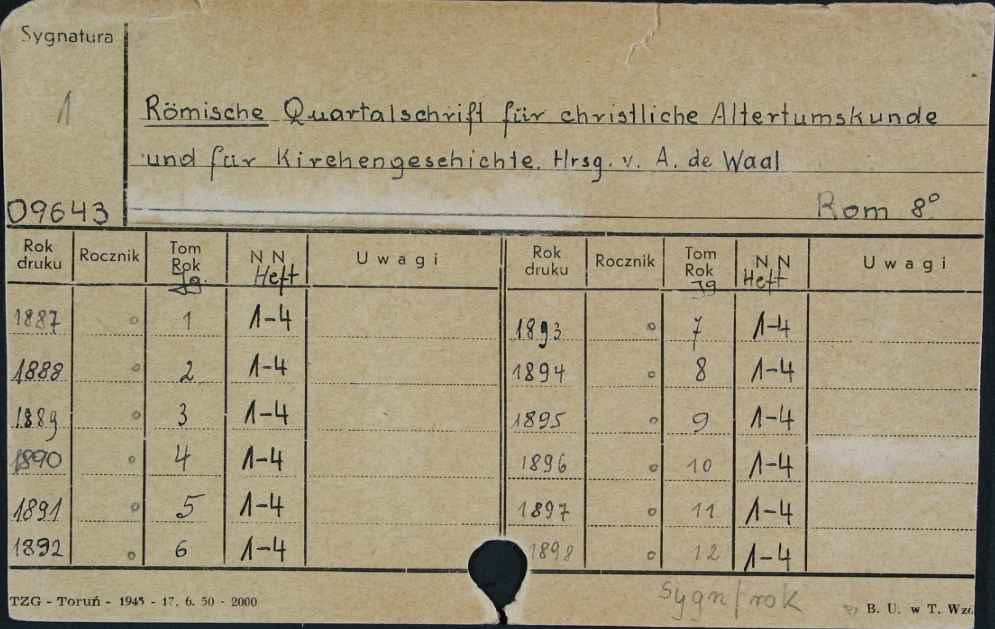 Sygnatura
1
Römische Quartalschrift für christliche Altertumskunde
und für Kirchengeschichte. Hrsg. v. A. de Waal
09643
Rom 8°
Rok druku Rocznik Tom Rok Jg. NN Heft Uwagi Rok druku Rocznik Tom Rok Jg NN Heft Uwagi
1887 o 1 1-4 1893 o 7 1-4
1888 o 2 1-4 1894 o 8 1-4
1889 o 3 1-4 1895 o 9 1-4
1890 o 4 1-4 1896 o 10 1-4
1891 o 5 1-4 1897 o 11 1-4
1892 o 6 1-4 1898 o 12 1-4
Sygn/rok
TZG - Toruń - 1945 - 17. 6. 50 - 2000
B. U. w T. Wzó